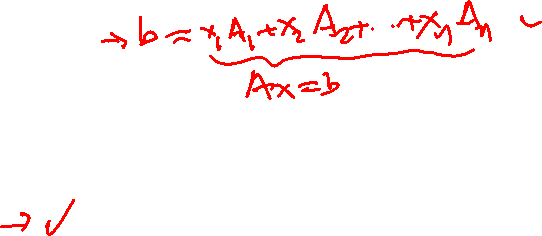 → b = x₁A₁ + x₂A₂ + .. + xₙAₙ ✓
Ax = b
→ ✓